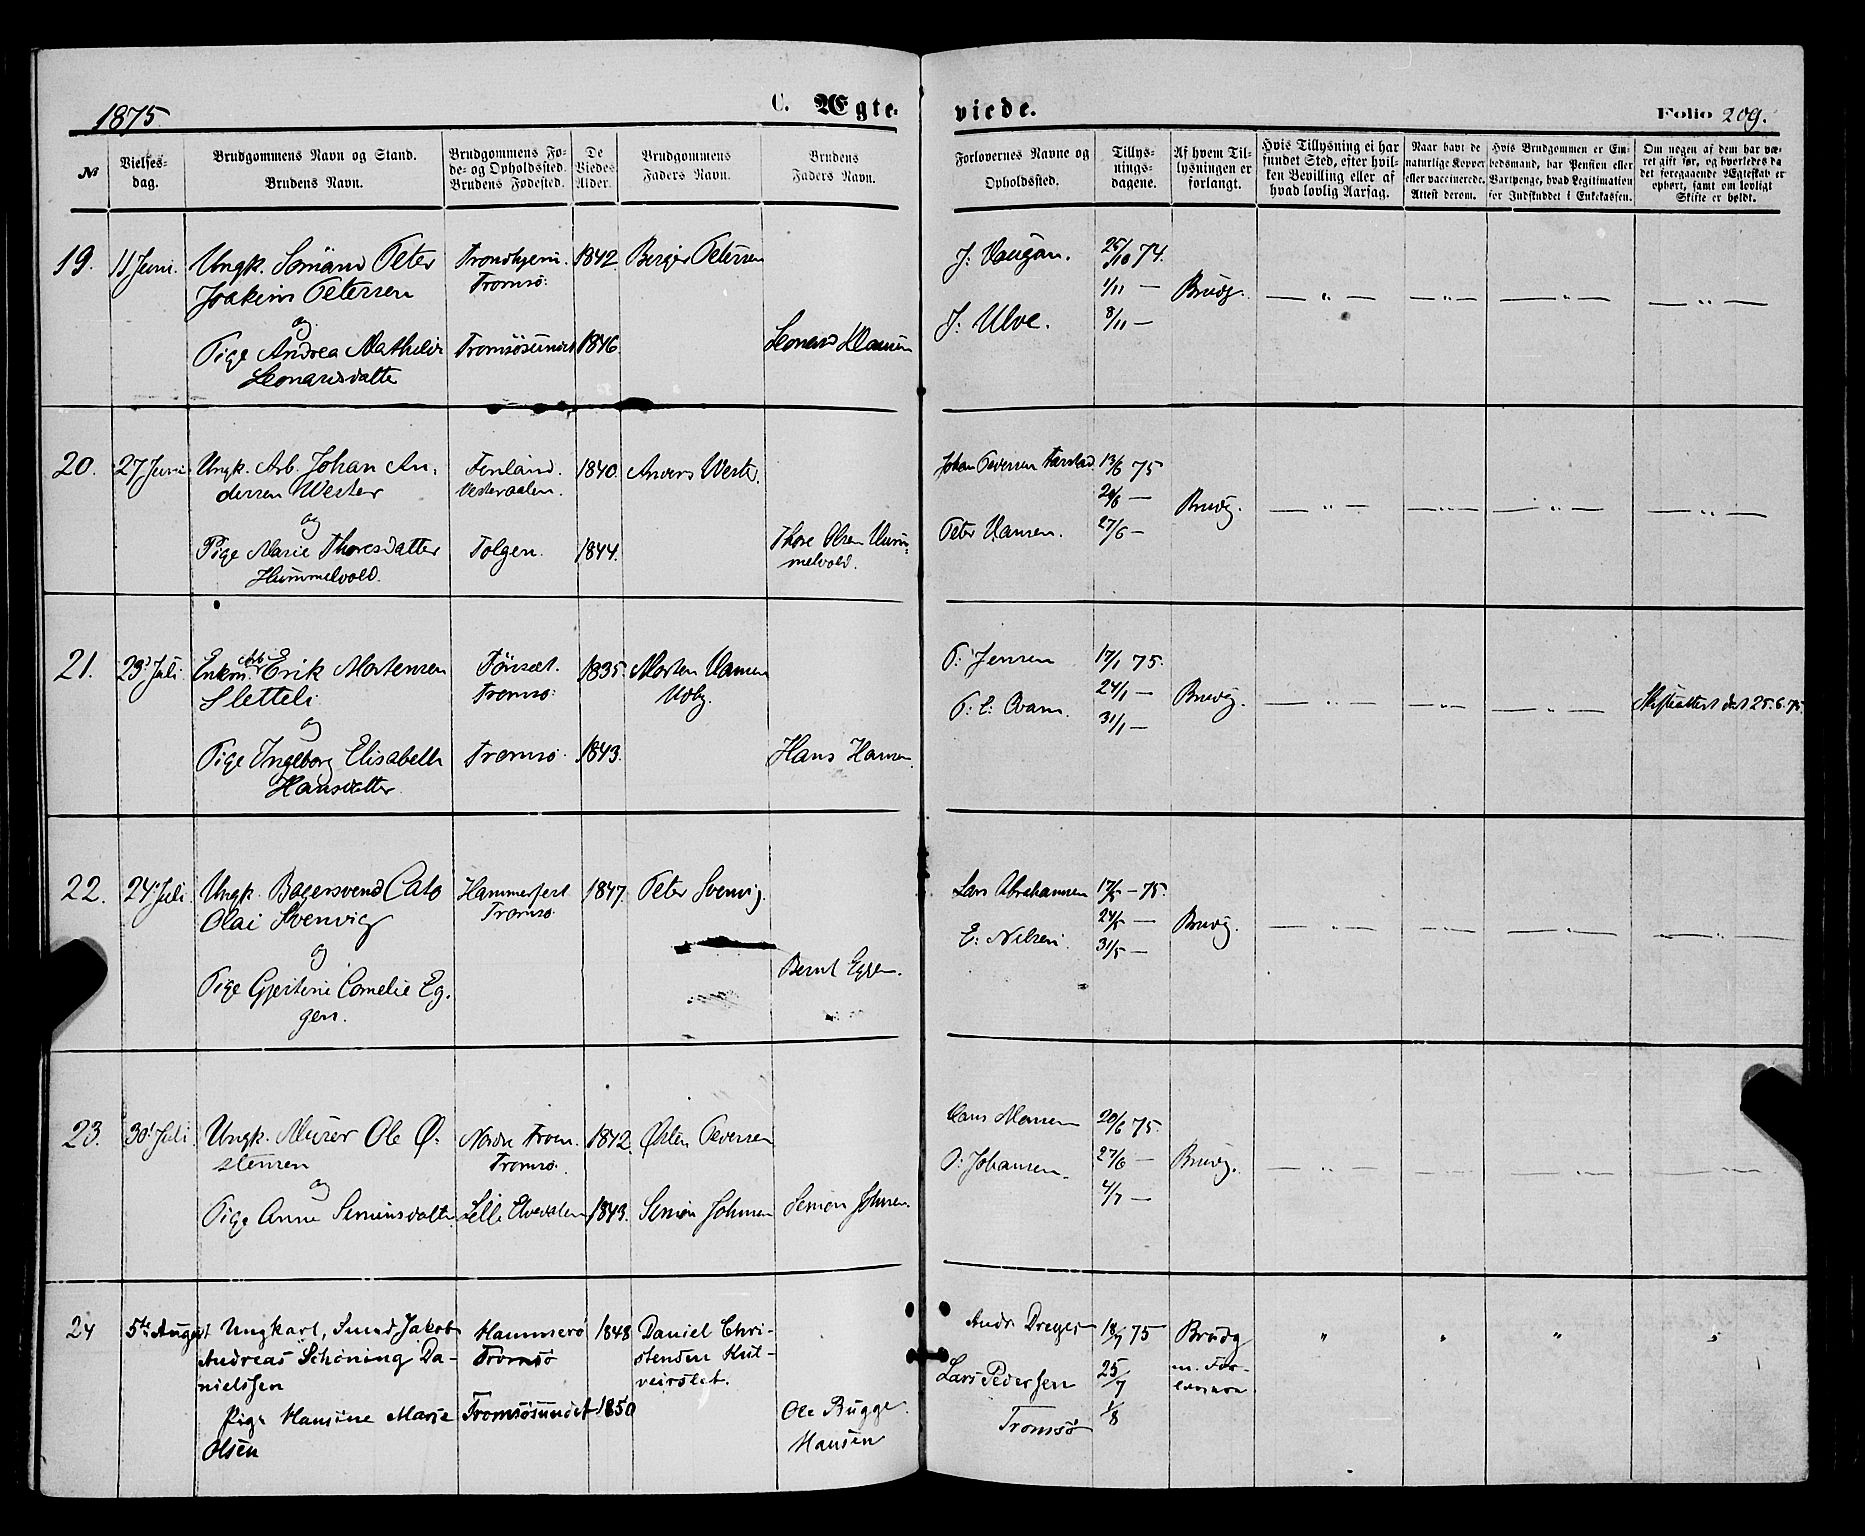 1875.
C. Ægte-
viede.
Folio 209.
№
Vielses-
dag.
Brudgommens Navn og Stand.
Brudens Navn.
Brudgommens Fø-
de- og Opholdssted.
Brudens Fødested.
De
Viedes
Alder.
Brudgommens
Faders Navn.
Brudens
Faders Navn.
Forlovernes Navne og
Opholdssted.
Tillys-
nings-
dagene.
Af hvem Til-
lysningen er
forlangt.
Hvis Tillysning ei har
fundet Sted, efter hvil-
ken Bevilling eller af
hvad lovlig Aarsag.
Naar havt de
naturlige Kopper
eller vaccinerede.
Attest derom.
Hvis Brudgommen er Em-
bedsmand, har Pension eller
Vartpenge, hvad Legitimation
for Indskuddet i Enkekassen.
Om nogen af dem har væ-
ret gift før, og hvorledes da
det foregaaende Ægteskab er
ophørt, samt om lovligt
Skifte er holdt.
19. 11 Juni. Ungk. Sömand Peter Trondhjem. 1842. Berger Petersen J: Haugan. 25/10 74.
Joakim Petersen Tromsö. 1/11 — Brudg.
og J: Ulve. 8/11 —
Pige Andrea Mathilde Tromsösundet 1846. Leonard Hansen
Leonardsdatter
20. 27 Juni Ungk. Arb. Johan An- 1840. Anders Wester. Johan Pedersen 13/6 75
dersen Wester Vesteraalen. 20/6 — Brudg.
og Peter Hansen. 27/6 —
Pige Marie Thoresdatter Tolgen. 1844. Thore Olsen Hum-
Hummelvold. melvold.
21. 23' Juli. Enkm. Arb. Erik Mortensen Tönset. 1835. Morten Hansen P: Jensen 17/1 75.
Sletteli Tromsö. Udby. P: E: Qvam. 24/1 — Brudg. Skifteattest dat 25.6.75.
og 31/1 —
Pige Ingeborg Elisabeth Tromsö. 1843. Hans Hansen.
Hansdatter.
22. 24' Juli Ungk. Bagersvend Cato Hammerfest 1847. Peter Svenvig. Lars Abrahamsen 17/5 — 75.
Olai Svenvig Tromsö. 24/5 — Brudg.
og E: Nilsen. 31/5 —
Pige Gjertine Cornelie Eg- Bernt Eggen.
gen.
23. 30' Juli. Ungk. Murer Ole Ø- Nordre Tron. 1842. Østen Pedersen Hans Hansen 20/6 75.
stensen Tromsö. P: Johansen. 27/6 — Brudg.
og 4/7 —
Pige Anne Simensdatter Lille Elvedalen 1843. Simon Johnsen Simon Johnsen.
24 5te August Ungkarl, Smed Jakob Hammerö 1848 Daniel Chri- Andr Dreyer 18/7 75 Brudg
Andreas Schöning Da- Tromsö stensen Hul- Lars Pedersen 25/7 m. For-
nielssen veirslet. 1/8 loverne
Pige Hansine Marie Tromsösundet 1850 Ole Bugge Tromsö
Olsen Hansen